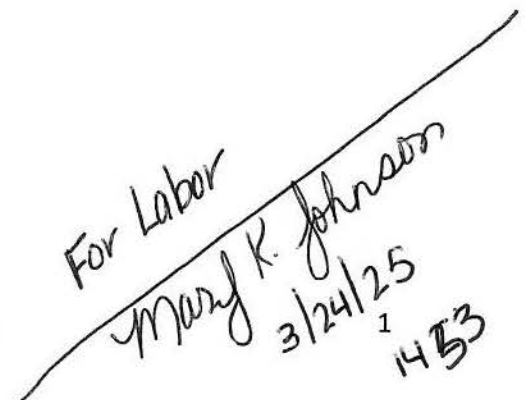 For Labor
Mary K. Johnson
3/24/25
1
1453